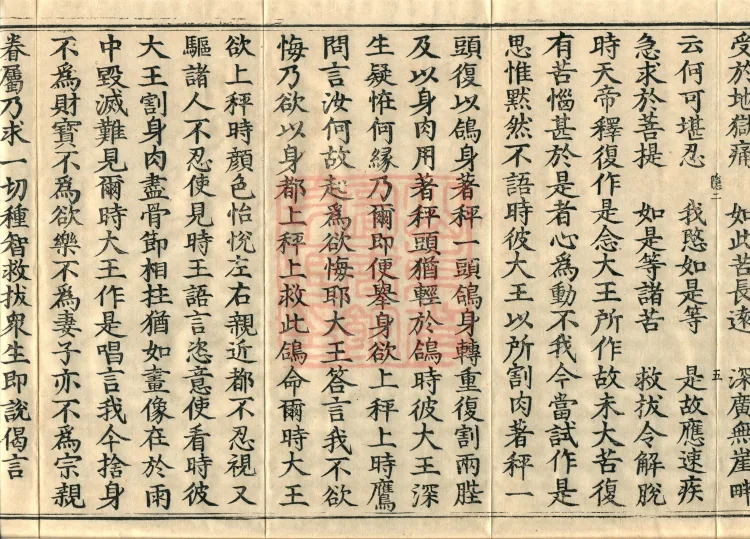 受於地獄痛　如此苦長遠　深廣無崖畔
云何可堪忍　我愍如是等　是故應速疾
急求於菩提　如是等諸苦　救拔令解脫
時天帝釋復作是念大王所作故未大苦復
有苦惱甚於是者心為動不我今當試作是
思惟默然不語時彼大王以所割肉著秤一
頭復以鴿身著秤一頭鴿身轉重復割兩䏶
及以身肉用著秤頭猶輕於鴿時彼大王深
生疑恠何緣乃爾即便舉身欲上秤上時鷹
問言汝何故起為欲悔耶大王答言我不欲
悔乃欲以身都上秤上救此鴿命爾時大王
欲上秤時顏色怡悅左右親近都不忍視又
驅諸人不忍使見時王語言恣意使看時彼
大王割身肉盡骨節相拄猶如畫像在於雨
中毀滅難見爾時大王作是唱言我今捨身
不為財寶不為欲樂不為妻子亦不為宗親
眷屬乃求一切種智救拔眾生即說偈言
五